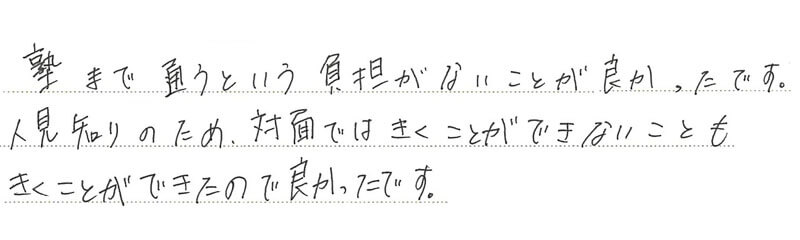 塾まで通うという負担がないことが良かったです。
人見知りのため、対面ではきくことができないことも
きくことができたので良かったです。